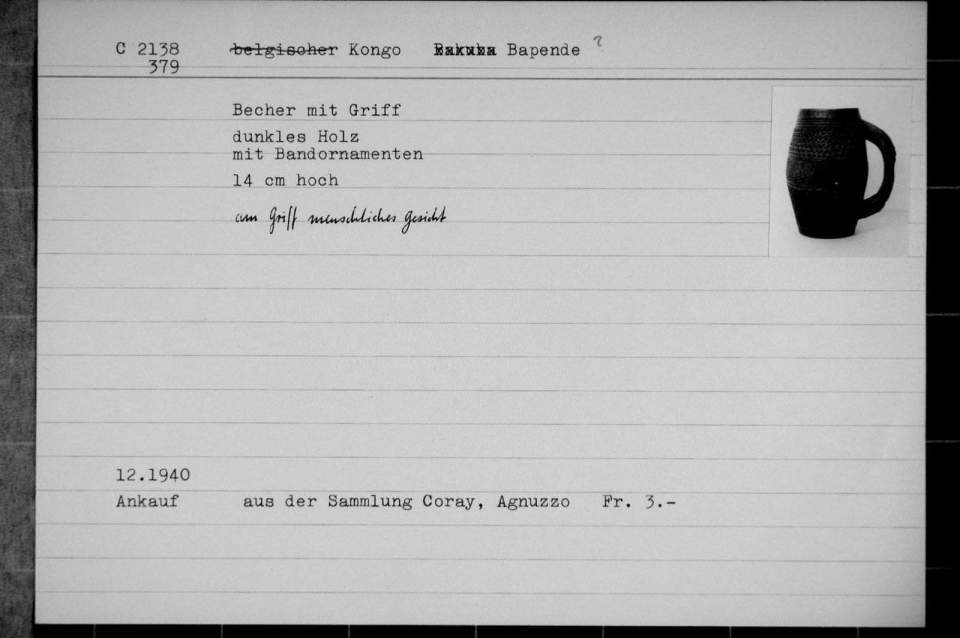 C 2138 belgischer Kongo Bakuba Bapende ?
379
Becher mit Griff
dunkles Holz
mit Bandornamenten
14 cm hoch
am Griff menschliches Gesicht
12.1940
Ankauf aus der Sammlung Coray, Agnuzzo Fr. 3.-